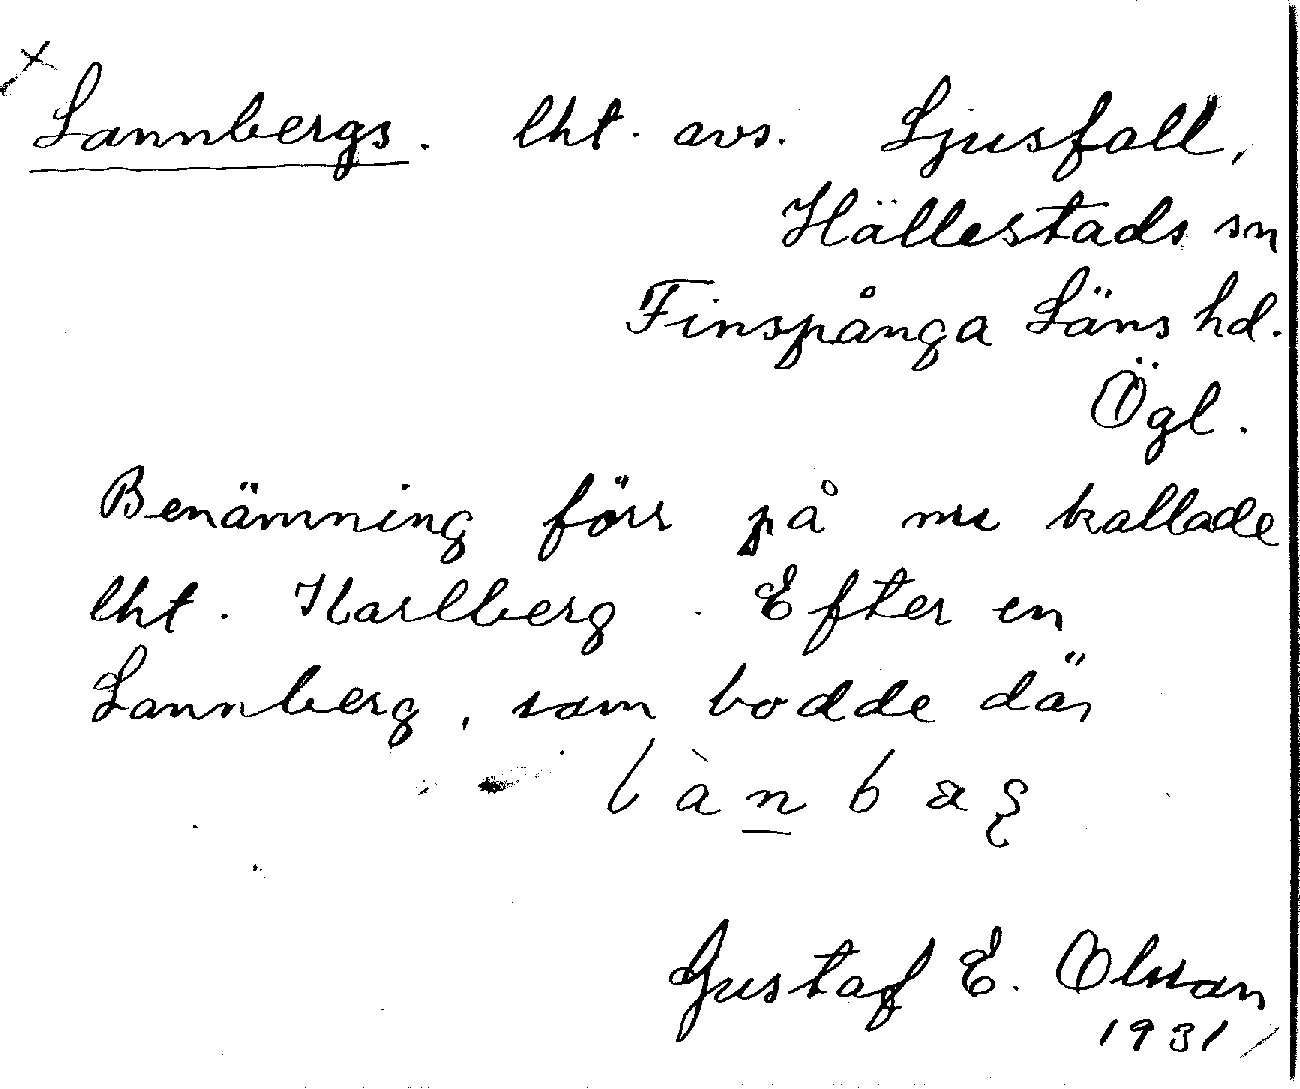 Lannbergs. lht. avs. Ljusfall,
Hällestads sn
Finspånga Läns hd.
Ögl.
Benämning förr på nu kallade
lht. Karlberg. Efter en
Lannberg, som bodde där
Gustaf E. Olsson
1931